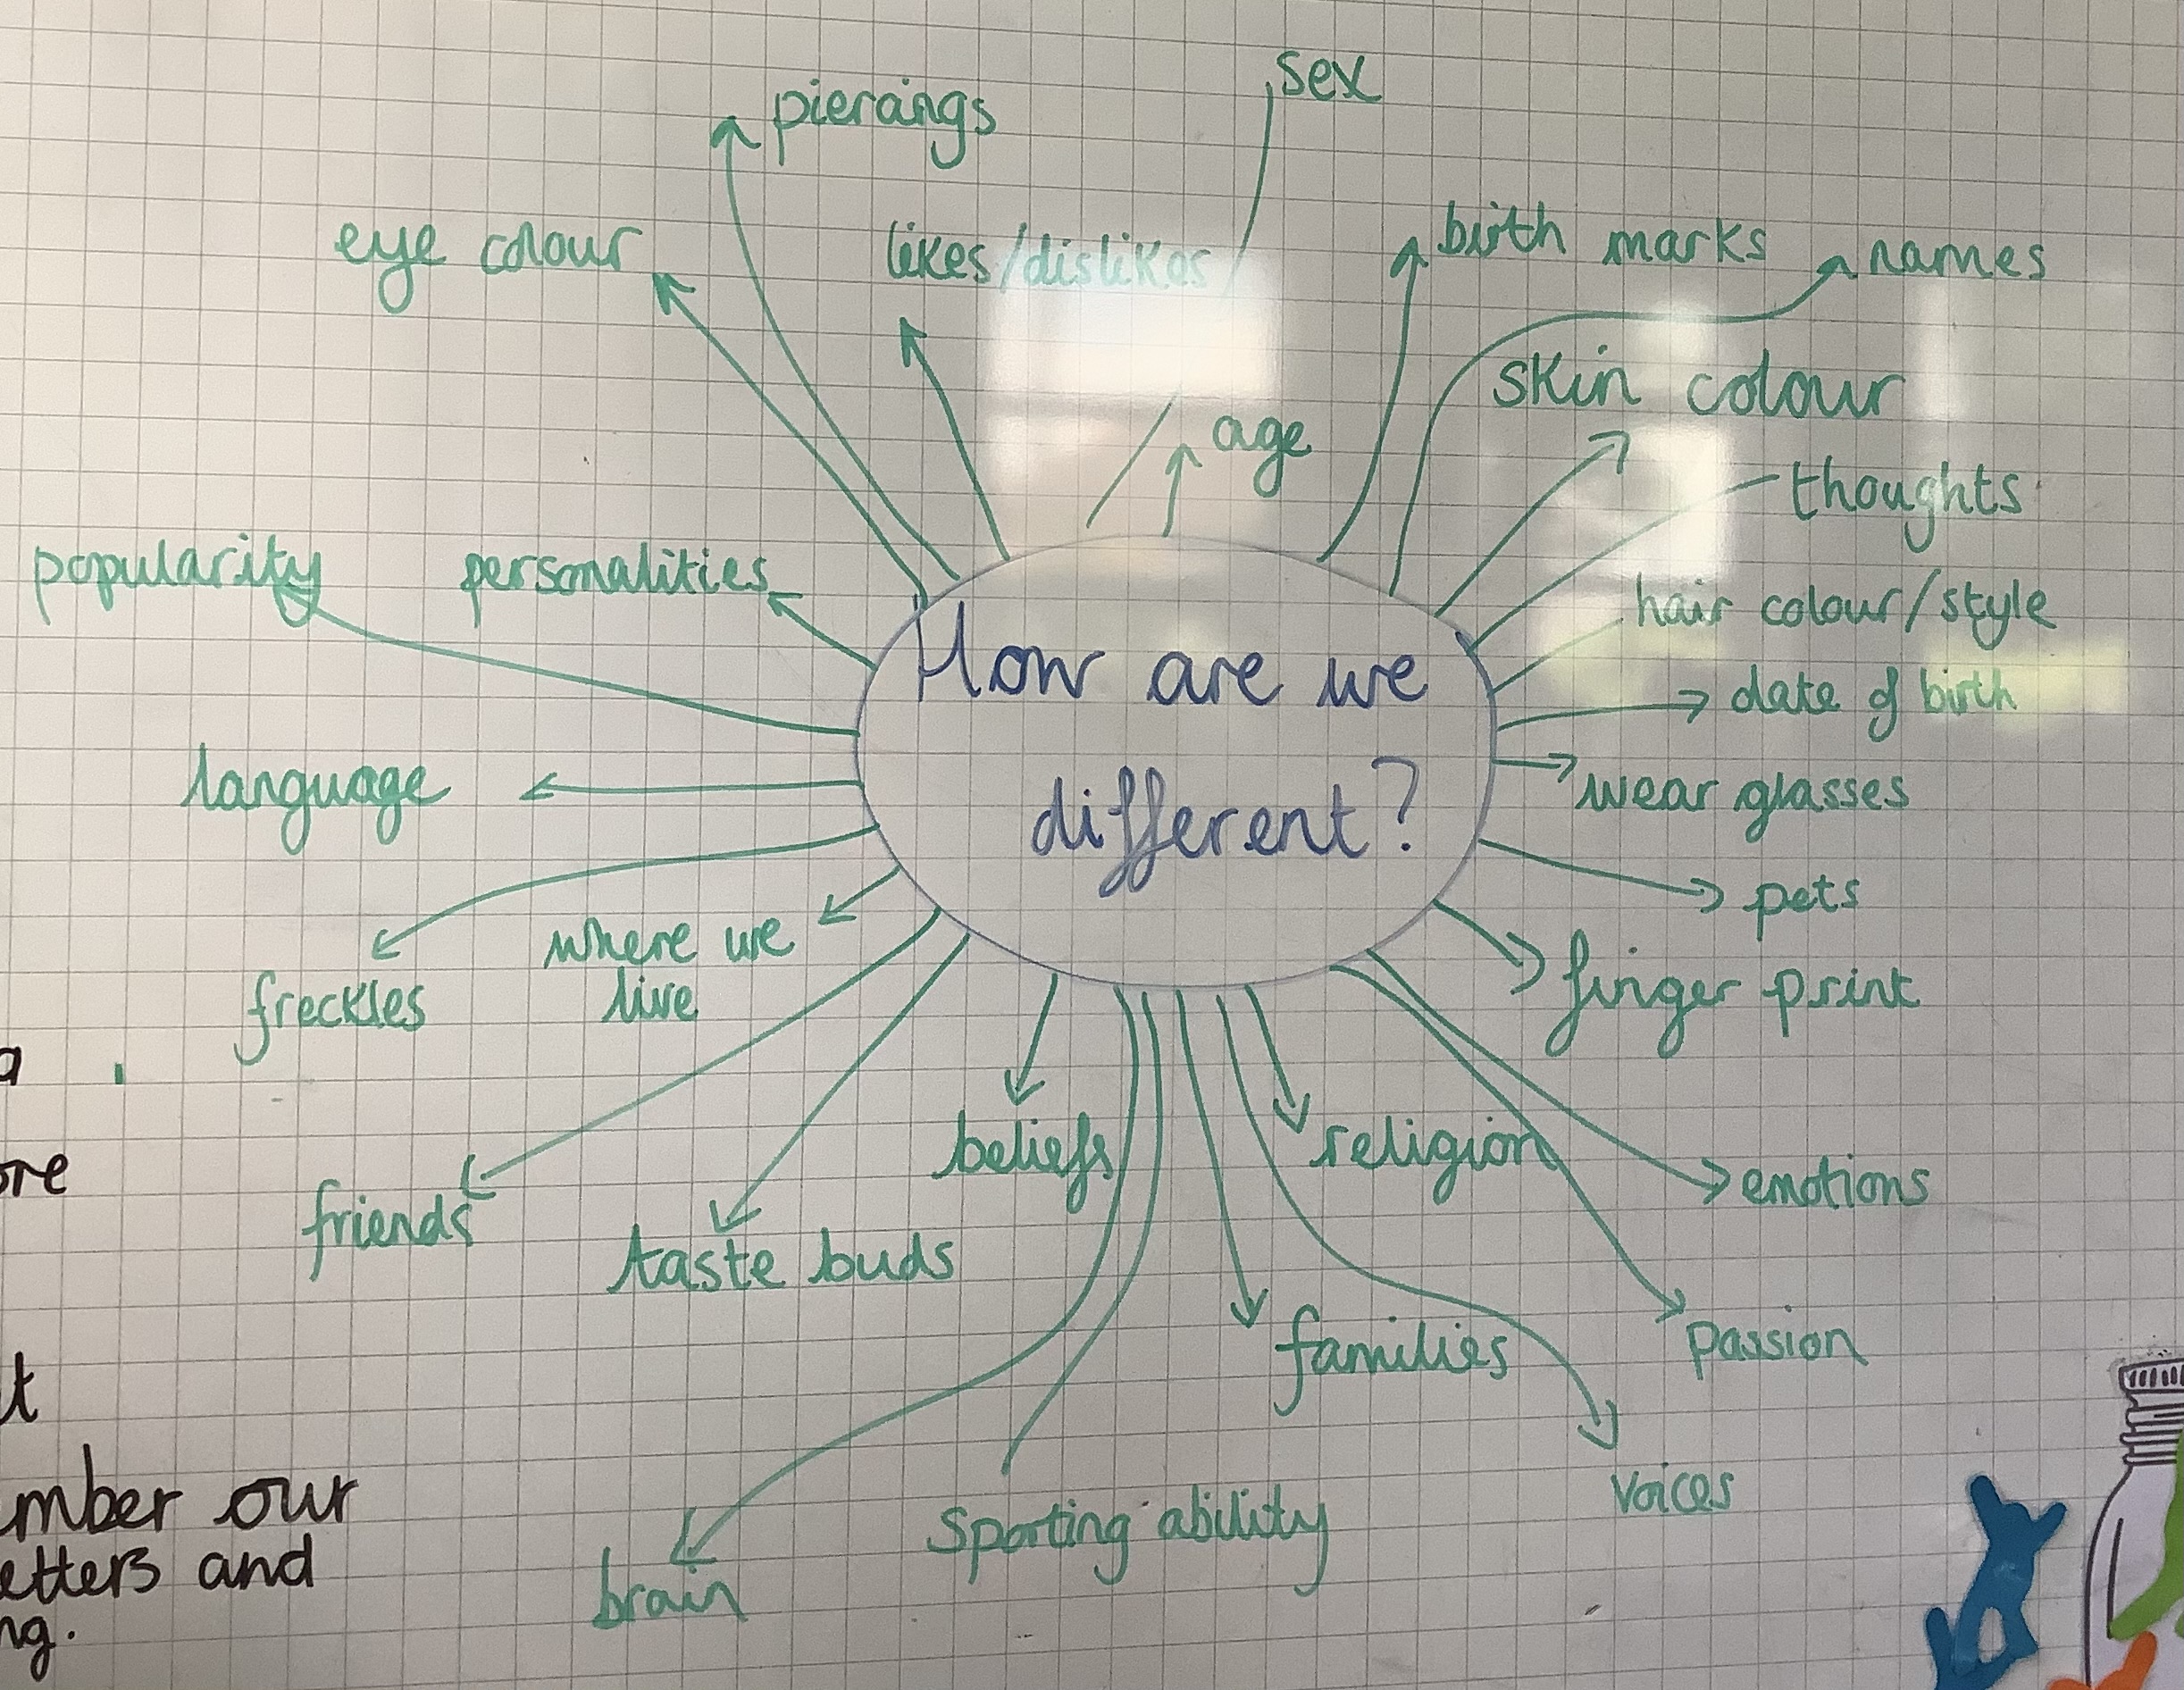 sex
piercings
birth marks
names
eye colour
likes/dislikes
skin colour
age
thoughts
popularity
personalities
hair colour/style
How are we
different?
date of birth
language
wear glasses
pets
where we
live
freckles
finger print
beliefs
religion
emotions
friends
taste buds
families
passion
voices
sporting ability
brain
our
and